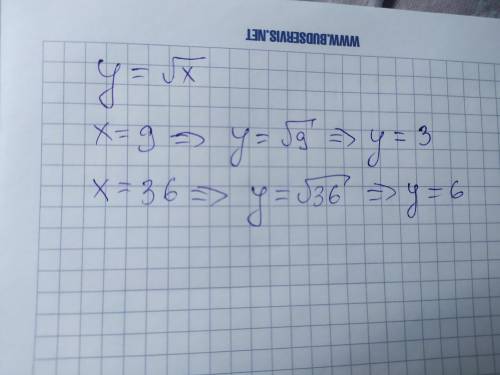 WWW.BUDSERVIS.NET
y = √x
x = 9 => y = √9 => y = 3
x = 36 => y = √36 => y = 6